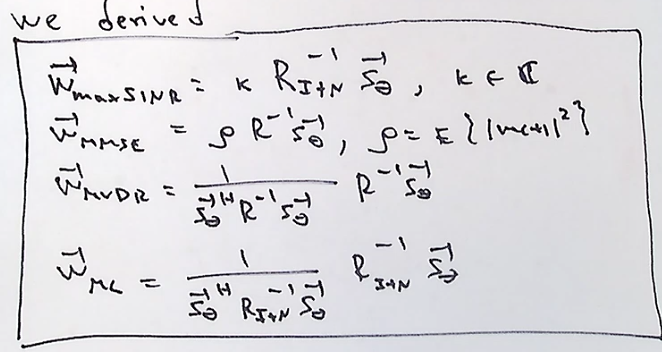 we derived
w⃗_maxSINR = κ R_{I+N}^{-1} s⃗_θ, κ ∈ ℂ
w⃗_MMSE = ρ R^{-1} s⃗_θ, ρ = E{|m(t)|²}
w⃗_MVDR = 1 / (s⃗_θ^H R^{-1} s⃗_θ) R^{-1} s⃗_θ
w⃗_ML = 1 / (s⃗_θ^H R_{I+N}^{-1} s⃗_θ) R_{I+N}^{-1} s⃗_θ